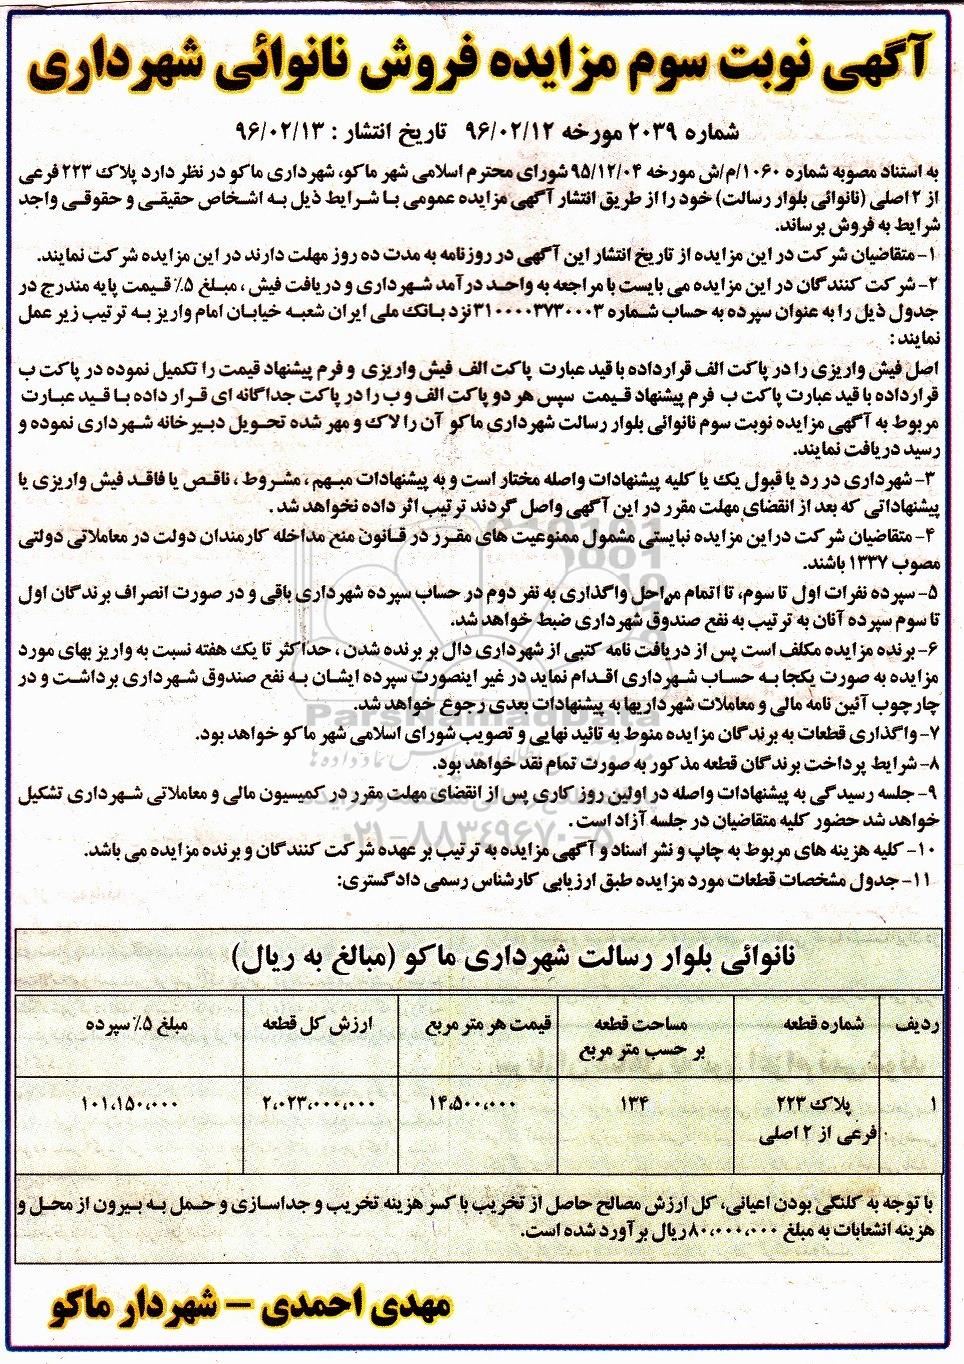 آگهی نوبت سوم مزایده فروش نانوائی شهرداری
شماره ۲۰۳۹ مورخه ۹۶/۰۲/۱۲ تاریخ انتشار : ۹۶/۰۲/۱۳
به استناد مصوبه شماره ۱۰۶۰/م/ش مورخه ۹۵/۱۲/۰۴ شورای محترم اسلامی شهر ماکو، شهرداری ماکو در نظر دارد پلاک ۲۲۳ فرعی
از ۲ اصلی (نانوائی بلوار رسالت) خود را از طریق انتشار آگهی مزایده عمومی با شرایط ذیل به اشخاص حقیقی و حقوقی واجد
شرایط به فروش برساند.
۱- متقاضیان شرکت در این مزایده از تاریخ انتشار این آگهی در روزنامه به مدت ده روز مهلت دارند در این مزایده شرکت نمایند.
۲- شرکت کنندگان در این مزایده می بایست با مراجعه به واحد درآمد شهرداری و دریافت فیش ، مبلغ ۵٪ قیمت پایه مندرج در
جدول ذیل را به عنوان سپرده به حساب شماره ۳۱۰۰۰۰۳۷۳۰۰۰۳ نزد بانک ملی ایران شعبه خیابان امام واریز به ترتیب زیر عمل
نمایند :
اصل فیش واریزی را در پاکت الف قرارداده با قید عبارت پاکت الف فیش واریزی و فرم پیشنهاد قیمت را تکمیل نموده در پاکت ب
قرارداده با قید عبارت پاکت ب فرم پیشنهاد قیمت سپس هر دو پاکت الف و ب را در پاکت جداگانه ای قرار داده با قید عبارت
مربوط به آگهی مزایده نوبت سوم نانوائی بلوار رسالت شهرداری ماکو آن را لاک و مهر شده تحویل دبیرخانه شهرداری نموده و
رسید دریافت نمایند.
۳- شهرداری در رد یا قبول یک یا کلیه پیشنهادات واصله مختار است و به پیشنهادات مبهم ، مشروط ، ناقص یا فاقد فیش واریزی یا
پیشنهاداتی که بعد از انقضای مهلت مقرر در این آگهی واصل گردند ترتیب اثر داده نخواهد شد .
۴- متقاضیان شرکت دراین مزایده نبایستی مشمول ممنوعیت های مقرر در قانون منع مداخله کارمندان دولت در معاملاتی دولتی
مصوب ۱۳۳۷ باشند.
۵- سپرده نفرات اول تا سوم، تا اتمام مراحل واگذاری به نفر دوم در حساب سپرده شهرداری باقی و در صورت انصراف برندگان اول
تا سوم سپرده آنان به ترتیب به نفع صندوق شهرداری ضبط خواهد شد.
۶- برنده مزایده مکلف است پس از دریافت نامه کتبی از شهرداری دال بر برنده شدن ، حداکثر تا یک هفته نسبت به واریز بهای مورد
مزایده به صورت یکجا به حساب شهرداری اقدام نماید در غیر اینصورت سپرده ایشان به نفع صندوق شهرداری برداشت و در
چارچوب آئین نامه مالی و معاملات شهرداریها به پیشنهادات بعدی رجوع خواهد شد.
۷- واگذاری قطعات به برندگان مزایده منوط به تائید نهایی و تصویب شورای اسلامی شهر ماکو خواهد بود.
۸- شرایط پرداخت برندگان قطعه مذکور به صورت تمام نقد خواهد بود.
۹- جلسه رسیدگی به پیشنهادات واصله در اولین روز کاری پس از انقضای مهلت مقرر در کمیسیون مالی و معاملاتی شهرداری تشکیل
خواهد شد حضور کلیه متقاضیان در جلسه آزاد است .
۱۰- کلیه هزینه های مربوط به چاپ و نشر اسناد و آگهی مزایده به ترتیب بر عهده شرکت کنندگان و برنده مزایده می باشد.
۱۱- جدول مشخصات قطعات مورد مزایده طبق ارزیابی کارشناس رسمی دادگستری:
ParsNamadData
۰۲۱-۸۸۳۴۹۶۷۰-۵
نانوائی بلوار رسالت شهرداری ماکو (مبالغ به ریال)
ردیف شماره قطعه مساحت قطعه بر حسب متر مربع قیمت هر متر مربع ارزش کل قطعه مبلغ ۵٪ سپرده
۱ پلاک ۲۲۳ فرعی از ۲ اصلی ۱۳۴ ۱۴،۵۰۰،۰۰۰ ۲،۰۲۳،۰۰۰،۰۰۰ ۱۰۱،۱۵۰،۰۰۰
با توجه به کلنگی بودن اعیانی، کل ارزش مصالح حاصل از تخریب با کسر هزینه تخریب و جداسازی و حمل به بیرون از محل و
هزینه انشعابات به مبلغ ۸۰،۰۰۰،۰۰۰ ریال برآورد شده است.
مهدی احمدی - شهردار ماکو